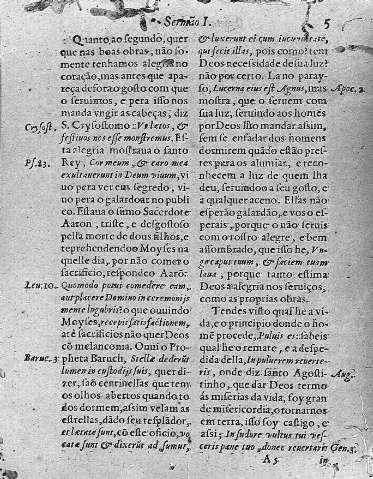 Sermão I. 5
Quanto ao segundo, quer
que nas boas obras, não so-
mente tenhamos alegria no
coração, mas antes que apa-
reça de fora o gosto com que
o seruimos, e pera isso nos
manda vngir as cabeças, diz
Crysost. S. Crysostomo: Vt letos, &
festiuos nos esse monstremus. Es-
ta alegria mostraua o santo
Ps. 83. Rey, Cor meum, & caro mea
exultauerunt in Deum viuum, vi-
uo pera ver eus segredo, vi-
uo pera o galardoar no publi
co. Estaua o sũmo Sacerdote
Aaron, triste, e desgostoso
pella morte de dous filhos, e
reprehendendo Moyses na
quelle dia, por não comer o
sacrificio, respondeo Aarõ:
Leu. 10. Quomodo potui comedere eam,
aut placere Domino in ceremonijs
mente lugubri? o que ouuindo
Moyses, recepit satisfactionem,
atè sacrificios não quer Deos
cõ melanconia. Ouui o Pro-
Baruc. 3 pheta Baruch, Stellæ dederũt
lumen in custodijs suis, quer di-
zer, saõ centinellas que tem
os olhos abertos quando to
dos dormem, assim velam as
estrellas, dãdo seu resplãdor,
et lætatæ sunt, cõ este oficio, vo
catæ sunt & dixerũt ad sumus,
& luxerunt ei cum iucunditate,
qui fecit illas, pois como? tem
Deos necessidade de sua luz?
não por certo. La no paray-
so, Lucerna eius est Agnus, mas Apoc. 2.
mostra, que o seruem com
sua luz, seruindo aos homẽs
por Deos isto mandar assim,
sem se enfadar dos homens
dormirem quãdo estão pres-
tes pera os alumiar, e reco-
nhecem a luz de quem lha
deu, seruindo a seu gosto, e
a qualquer aceno. Ellas não
esperão galardão, e vos o es-
perais, porque o não seruis
com o rosto alegre, e bem
assombrado, que isso he, Vn-
ge caput tuum, & faciem tuam
laua, porque tanto estima
Deos a alegria nos seruiços,
como as proprias obras.
Tendes visto qual he a vi-
da, e o principio donde o ho-
mẽ procede, Puluis es: sabeis
qual he o remate, e a despe-
dida della, In puluerem reuerte-
ris, onde diz santo Agosti- Aug.
tinho, que dar Deos termo
ás miserias da vida, foy gran
de misericordia, o tornarnos
em terra, isso foy castigo, e
assi; In sudore vultus tui ves-
ceris pane tuo, donec reuertaris Gen. 3.
A 5 in